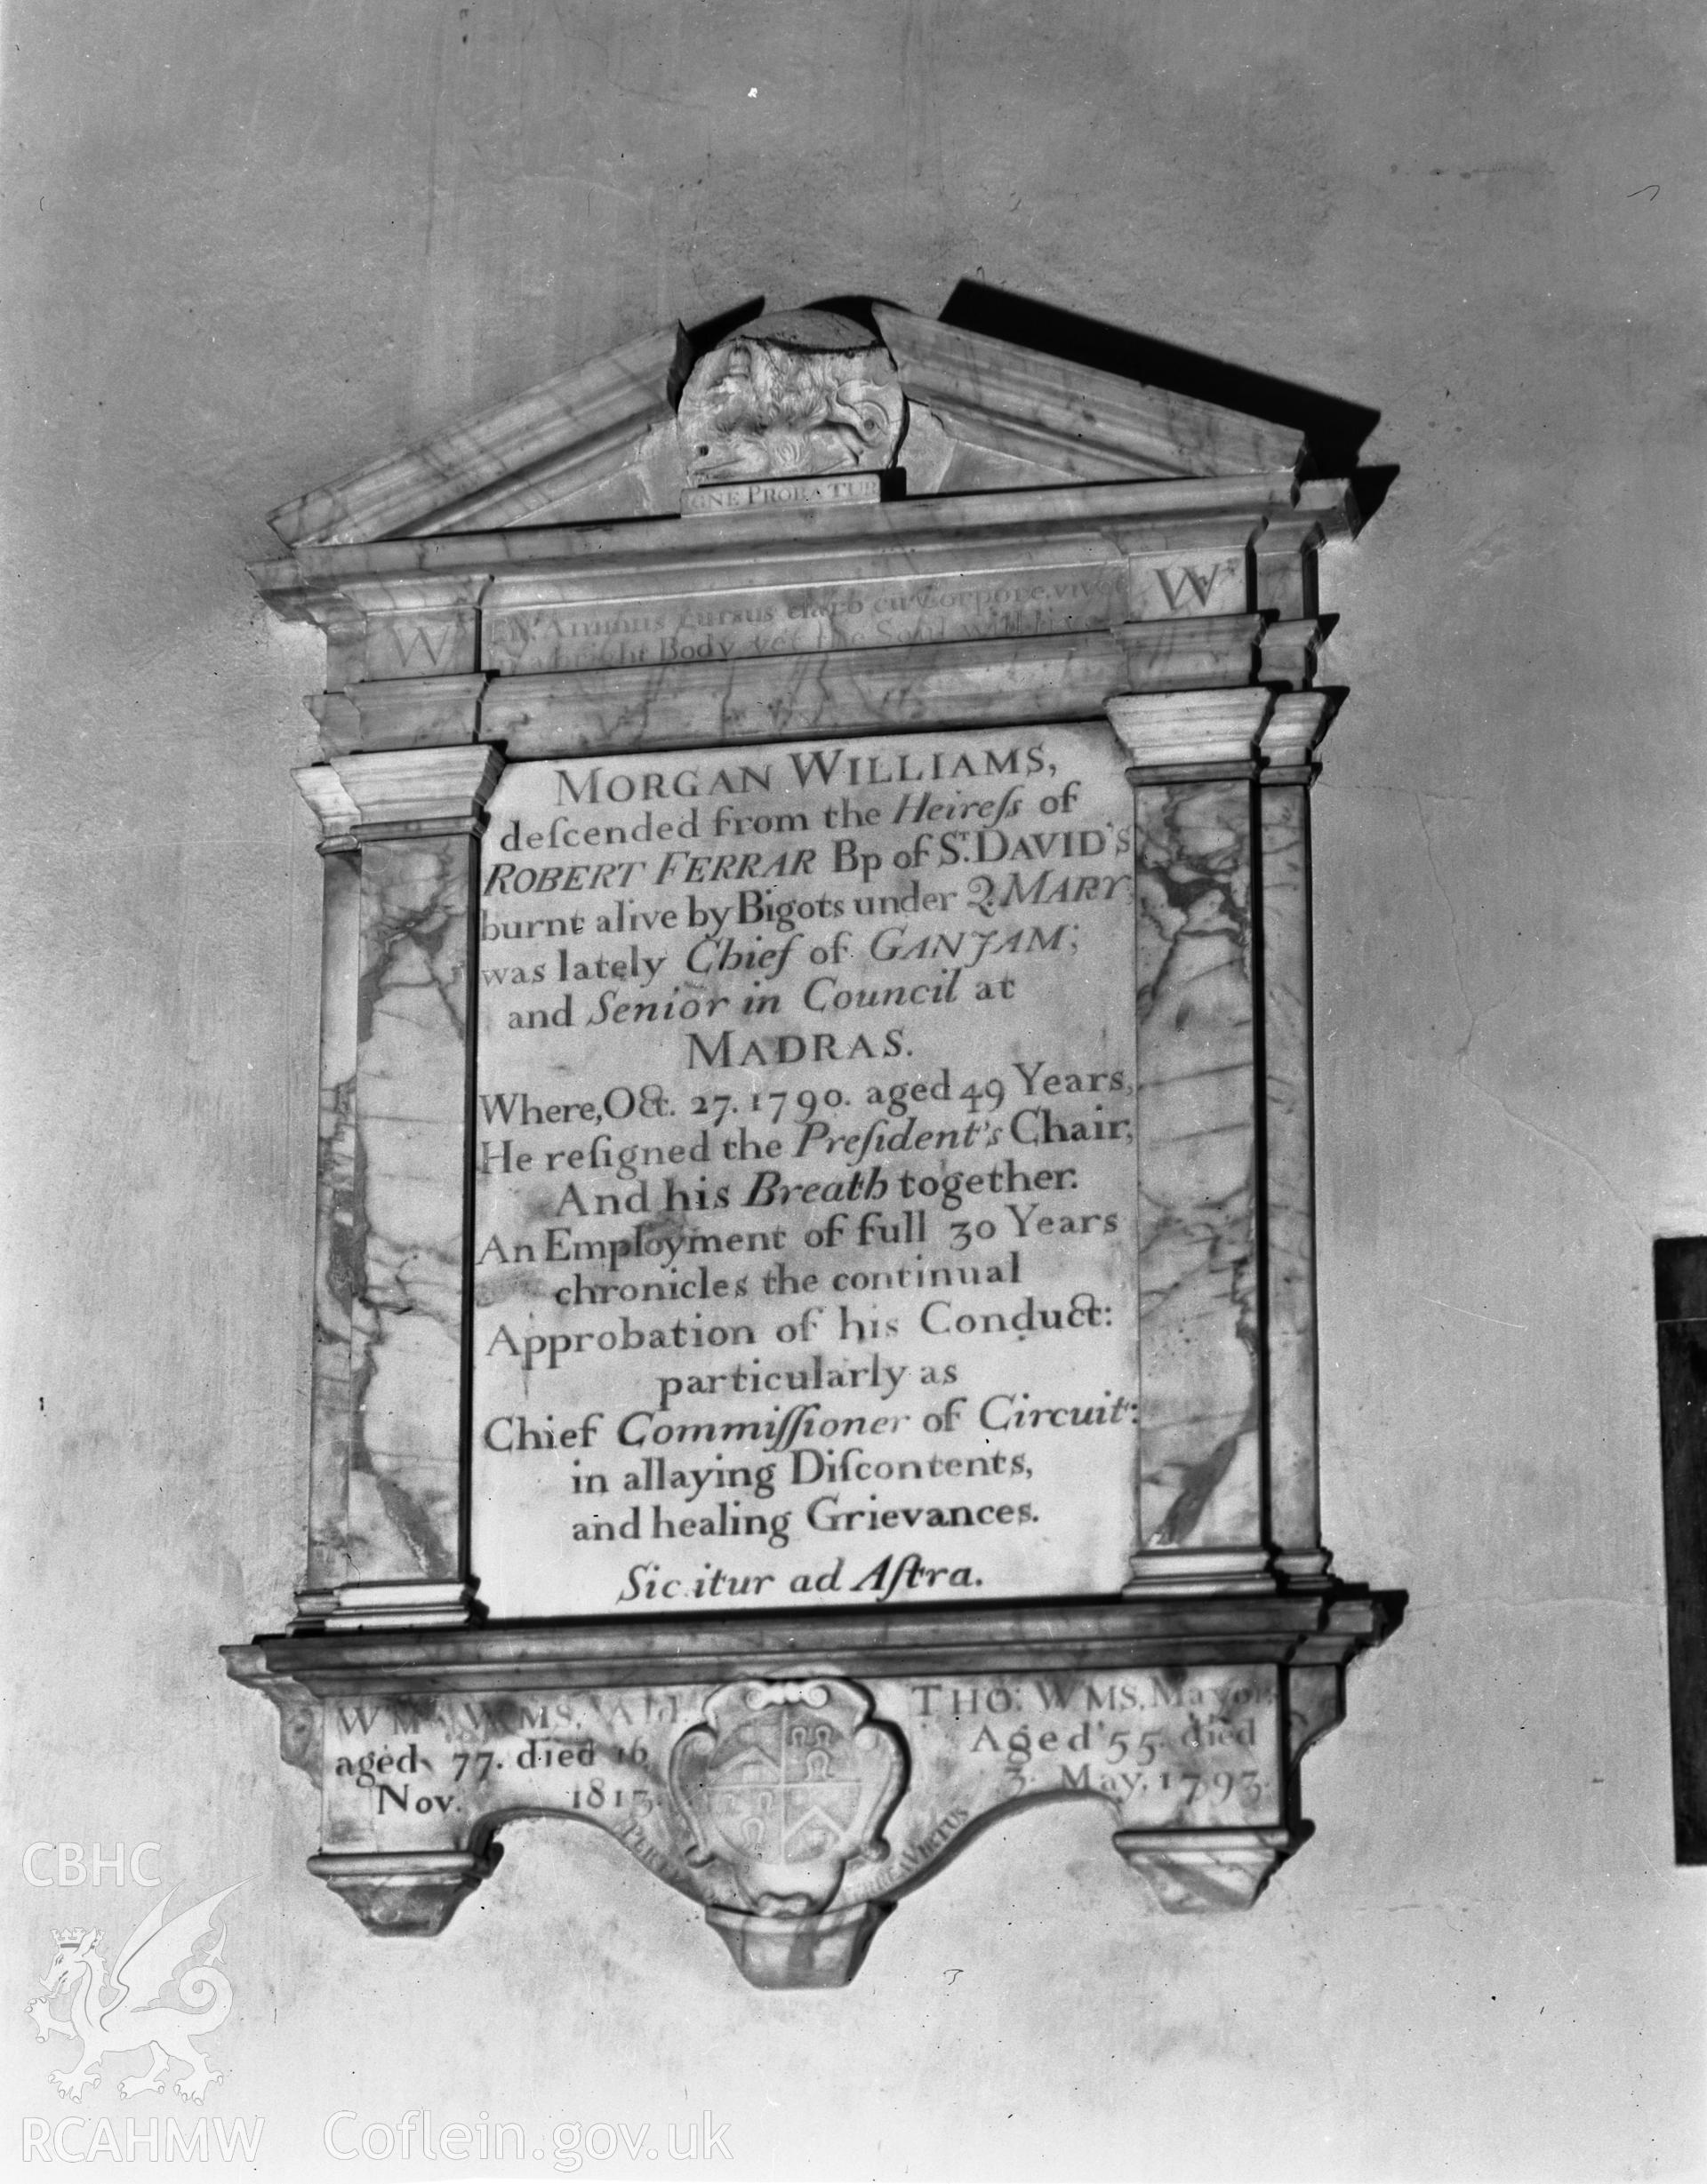 IGNE PROBATUR
W
W
Animus rursus claro cum corpore vivet
bright Body yet the Soul will live
MORGAN WILLIAMS,
deſcended from the Heireſs of
ROBERT FERRAR Bp of ST. DAVID'S
burnt alive by Bigots under Q. MARY,
was lately Chief of GANJAM;
and Senior in Council at
MADRAS.
Where, Oct. 27. 1790. aged 49 Years,
He reſigned the Preſident's Chair,
And his Breath together.
An Employment of full 30 Years
chronicles the continual
Approbation of his Conduct:
particularly as
Chief Commiſſioner of Circuit:
in allaying Diſcontents,
and healing Grievances.
Sic itur ad Aſtra.
WM. WMS. Ald.
aged 77. died 16
Nov. 1813.
THO: WMS. Mayor
Aged 55. died
3. May. 1793.
VIRTUS
CBHC
RCAHMW Coflein.gov.uk